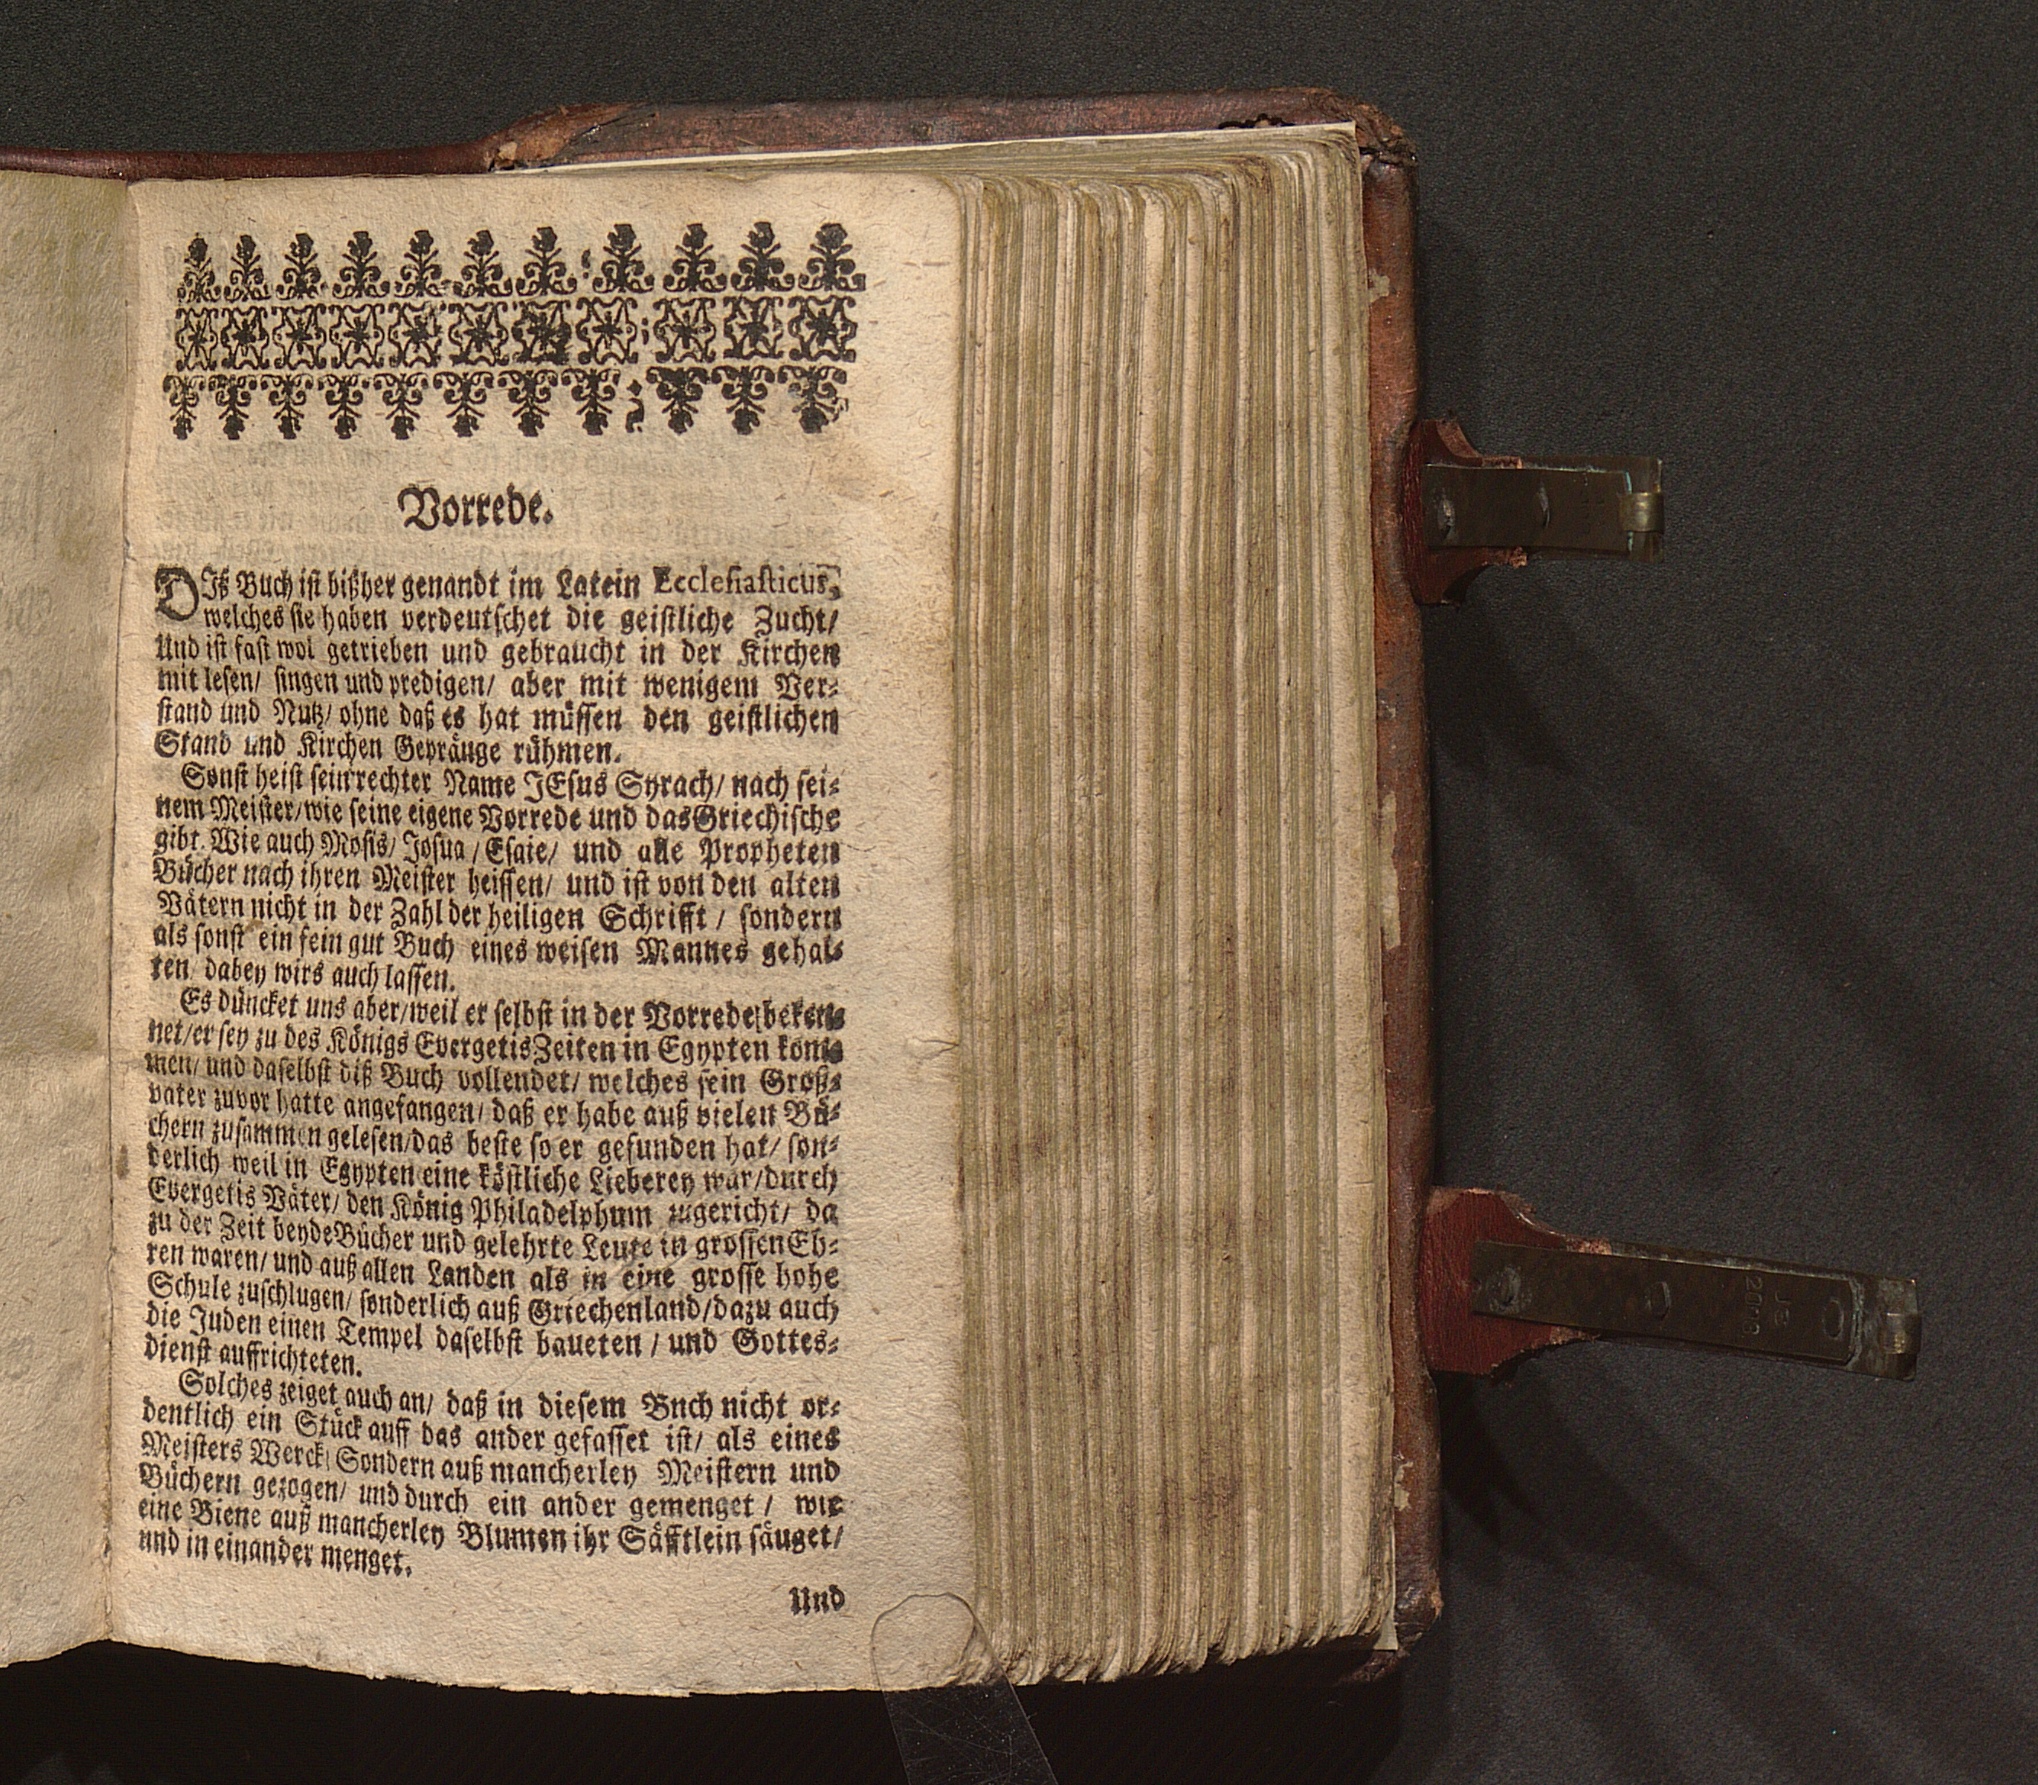 Vorrede.
DIß Buch ist bißher genandt im Latein Ecclesiasticus,
welches sie haben verdeutschet die geistliche Zucht/
Und ist fast wol getrieben und gebraucht in der Kirchen
mit lesen/ singen und predigen/ aber mit wenigem Ver-
stand und Nutz/ ohne daß es hat müssen den geistlichen
Stand und Kirchen Gepränge rühmen.
Sonst heist sein rechter Name JEsus Syrach/ nach sei-
nem Meister/ wie seine eigene Vorrede und das Griechische
gibt. Wie auch Mosis/ Josua/ Esaie/ und alle Propheten
Bücher nach ihren Meister heissen/ und ist von den alten
Vätern nicht in der Zahl der heiligen Schrifft/ sondern
als sonst ein fein gut Buch eines weisen Mannes gehal-
ten/ dabey wirs auch lassen.
Es düncket uns aber/ weil er selbst in der Vorrede beken-
net/ er sey zu des Königs Evergetis Zeiten in Egypten kom-
men/ und daselbst diß Buch vollendet/ welches sein Groß-
vater zuvor hatte angefangen/ daß er habe auß vielen Bü-
chern zusammen gelesen/ das beste so er gefunden hat/ son-
derlich weil in Egypten eine köstliche Lieberey war/ durch
Evergetis Väter/ den König Philadelphum zugericht/ da
zu der Zeit beyde Bücher und gelehrte Leute in grossen Eh-
ren waren/ und auß allen Landen als in eine grosse hohe
Schule zuschlugen/ sonderlich auß Griechenland/ dazu auch
die Juden einen Tempel daselbst baueten/ und Gottes-
dienst auffrichteten.
Solches zeiget auch an/ daß in diesem Bnch nicht or-
dentlich ein Stück auff das ander gefasset ist/ als eines
Meisters Werck/ Sondern auß mancherley Meistern und
Büchern gezogen/ und durch ein ander gemenget/ wie
eine Biene auß mancherley Blumen ihr Säfftlein säuget/
und in einander menget.
Und